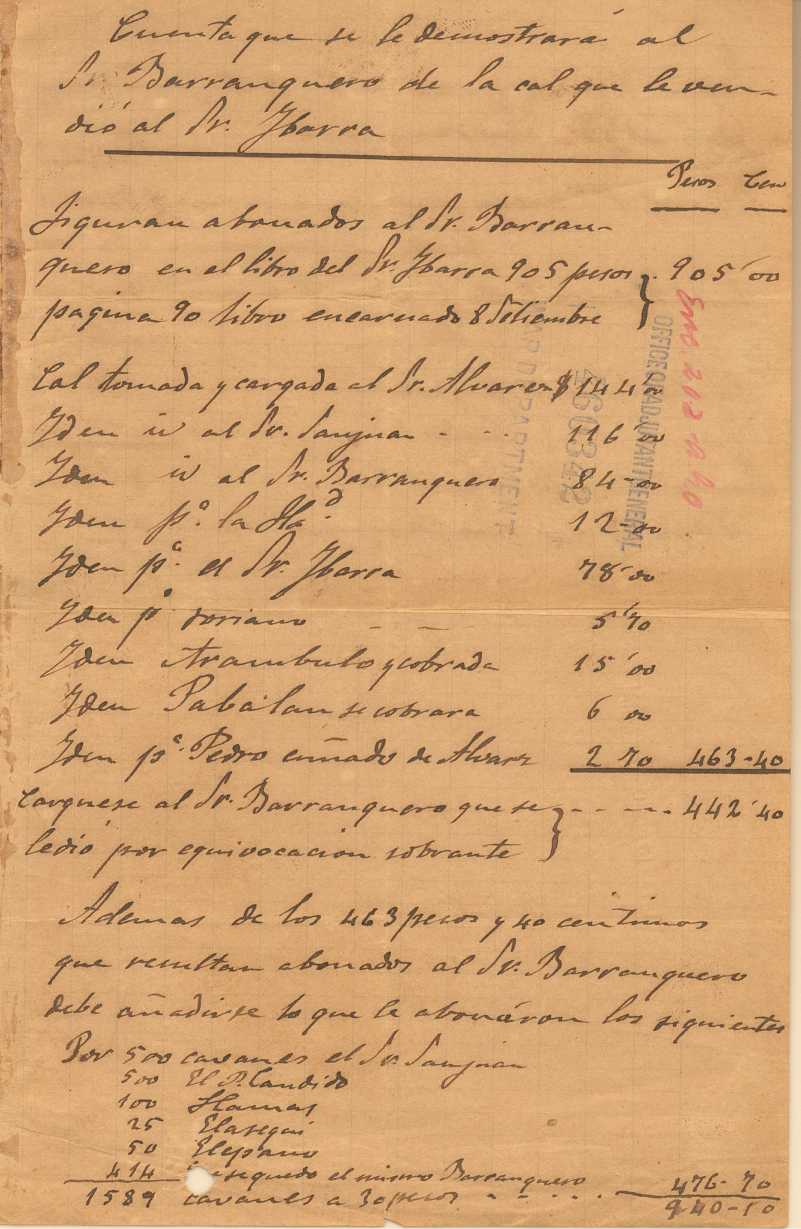 Cuenta que se le demostrará al
Sr. Barranquero de la cal que le ven-
dió al Sr. Ybarra
Pesos Cen
Figuran abonados al Sr. Barran-
quero en el libro del Sr. Ybarra 905 pesos . 905'00
pagina 90 libro encarnado 8 Setiembre
Cal tomada y cargada al Sr. Alvarez $ 144'00
Yden id al Sr. Sanjuan - - 116 00
Yden id al Sr. Barranquero 84-00
Yden pª la Hª.d 12-00
Yden pª el Sr. Ybarra 78'00
Yden pª Soriano - - 5'70
Yden Arambulo y cobrada 15'00
Yden Pabalan se cobrara 6 00
Yden pª Pedro cuñado de Alvarz 2 70 463-40
Carguese al Sr. Barranquero que se - - - - . 442'40
le dió por equivocacion sobrante
Ademas de los 463 pesos y 40 centimos
que resultan abonados al Sr. Barranquero
debe añadirse lo que le abonáron los siguientes
Por 500 cavanes el Sr. Sanjuan
500 El P. Candido
100 Llamas
25 Elasegui
50 Elepano
414 se quedo el mismo Barranquero
1589 cavanes a 30 pesos - - . . . 476-70
940-10
OFFICE OF ADJUTANT GENERAL
260342
DEPARTMENT